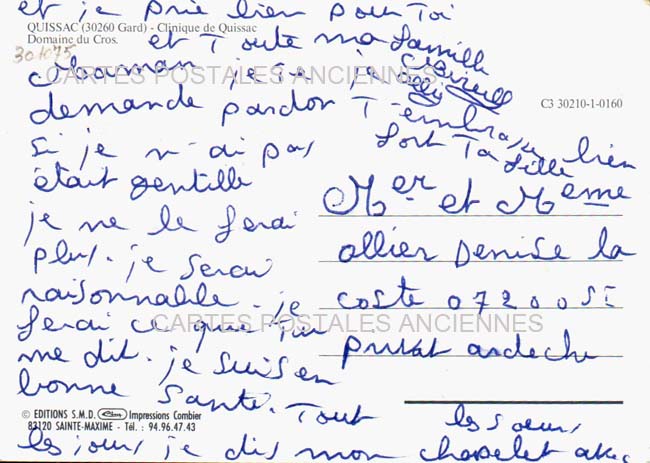 et je prie bien pour Toi
QUISSAC (30260 Gard) - Clinique de Quissac
Domaine du Cros.
et Toute ma famille
301075
CARTES POSTALES ANCIENNES
Maman je te
demande pardon
C3 30210-1-0160
T-embrasse bien
fort Ta fille
si je n-ai pas
était gentille
je ne le ferai
plus. je serai
raisonnable. je
ferai ce que Tu
me dit. je suis en
bonne santé. Tout
Mer et Meme
ollier Denise la
coste 07200 St
privat ardeche
CARTES POSTALES ANCIENNES
© EDITIONS S.M.D. Impressions Combier
83120 SAINTE-MAXIME - Tél. : 94.96.47.43
les sœurs
les jours je dis mon chapelet avec